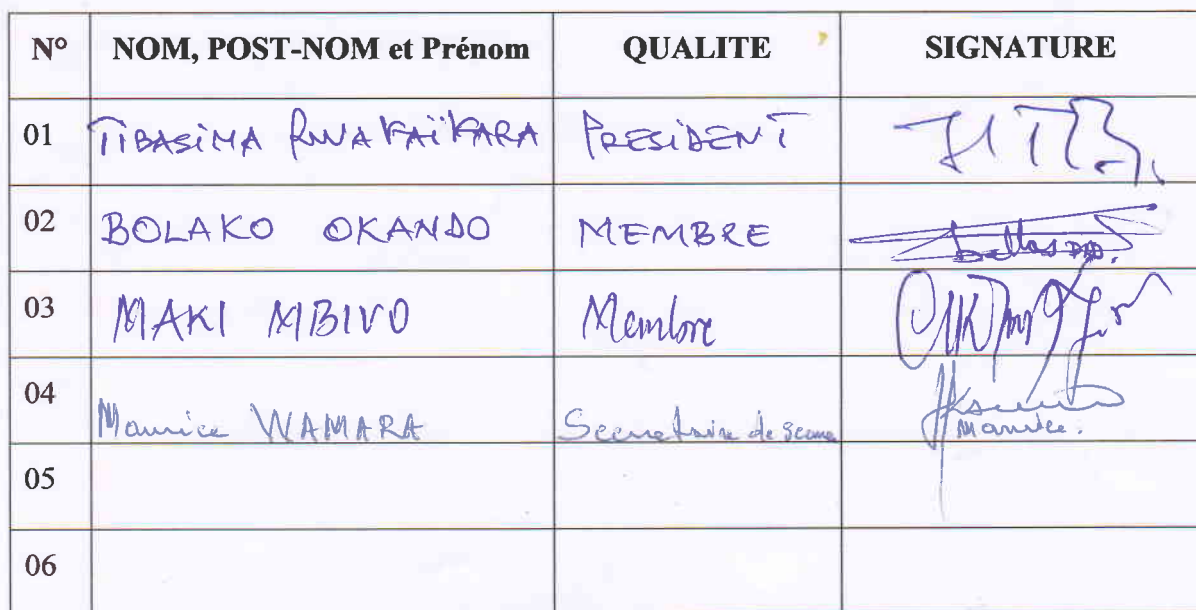 N° NOM, POST-NOM et Prénom QUALITE SIGNATURE
01 TIBASIMA RWAKAÏKARA PRESIDENT
02 BOLAKO OKANDO MEMBRE
03 MAKI MBIVO Membre
04 Maurice WAMARA Secretaire de
Maurice.
05
06